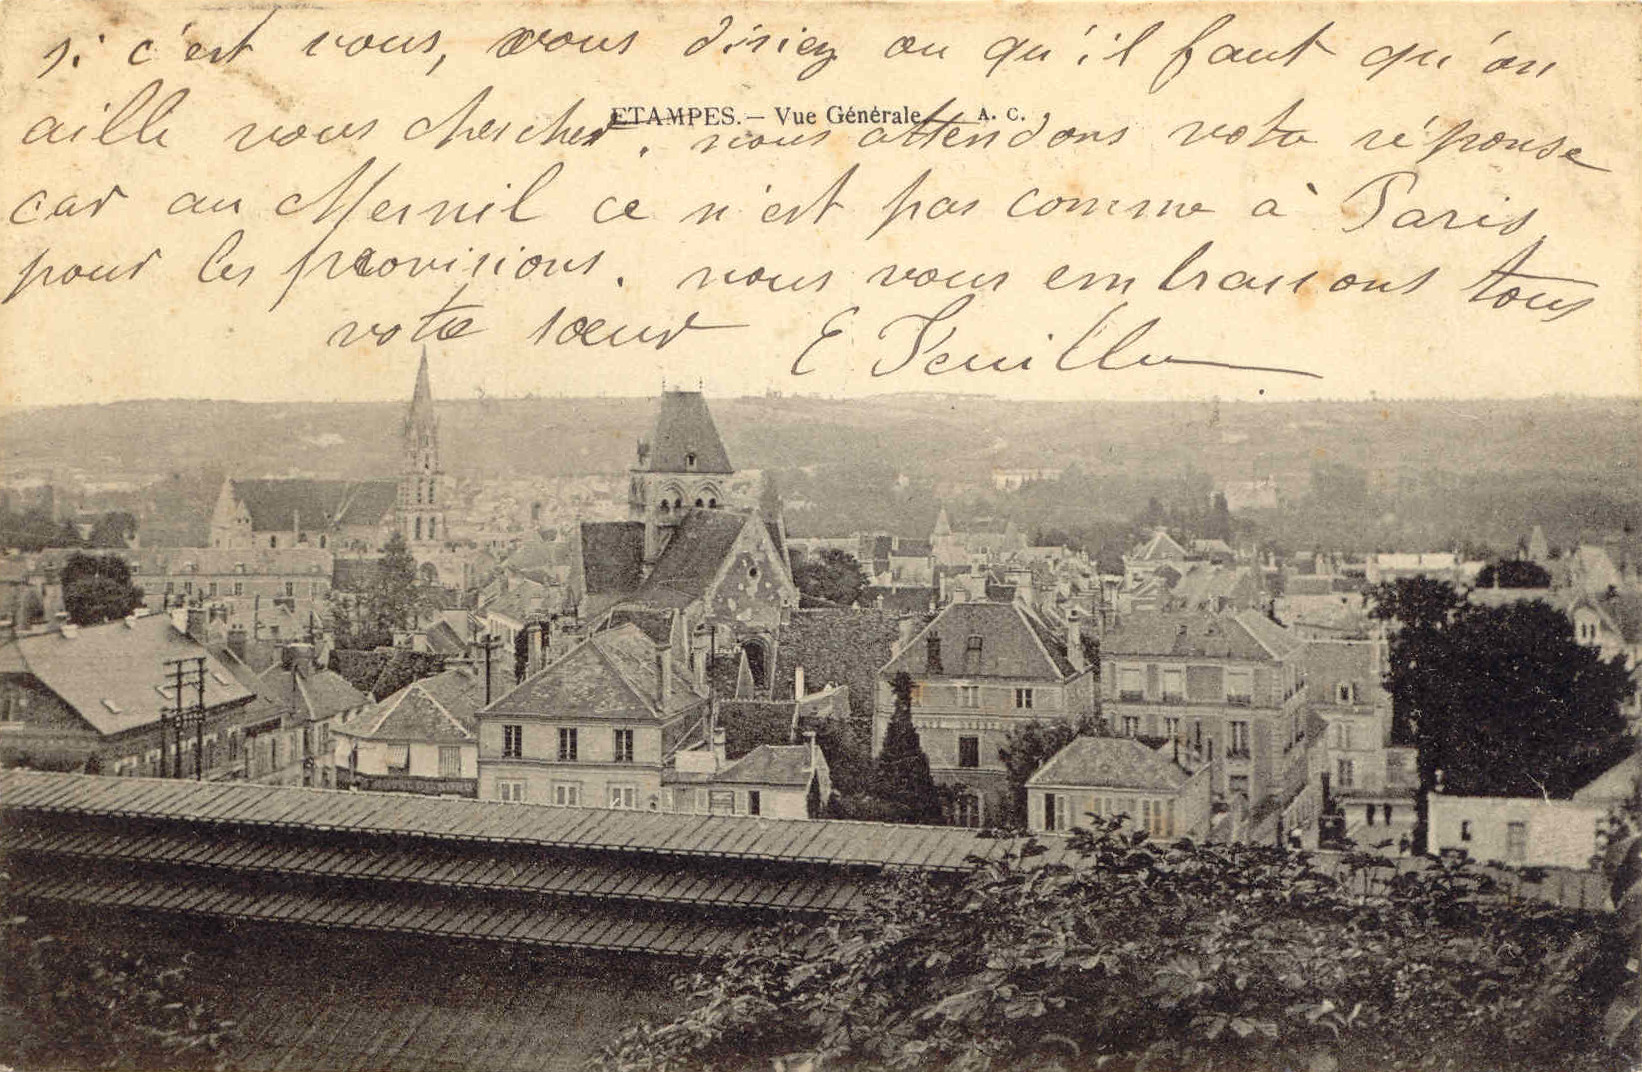 si c'est vous, vous disiez ou qu'il faut qu'on
ETAMPES. — Vue Générale — A. C.
aille vous chercher. nous attendons voter réponse
car au Mesnil ce n'est pas comme à Paris
pour les provisions. nous vous embrassons tous
votre sœur E